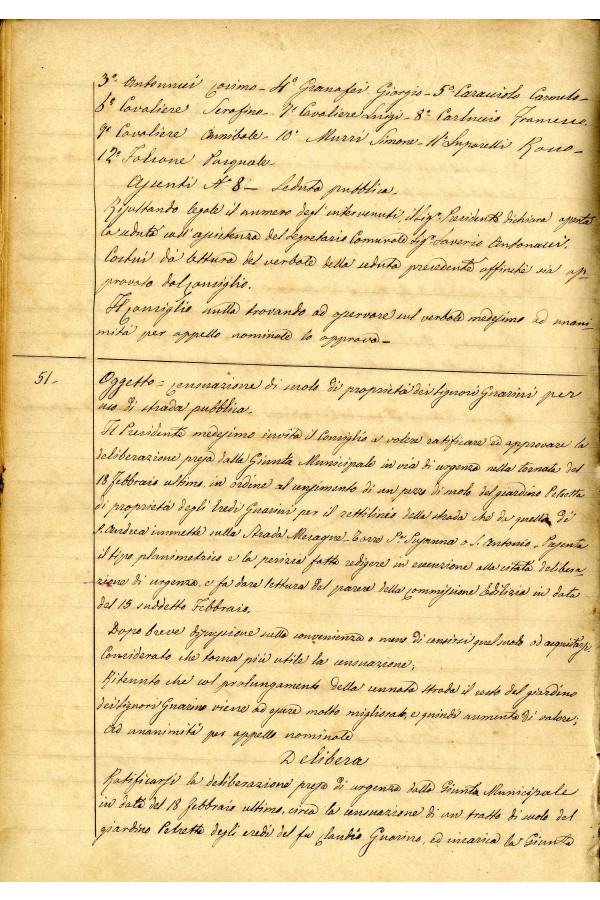 3° Antonucci Cosimo - 4° Granafei Giorgio - 5° Caracciolo Carmelo -
6° Cavaliere Serafino - 7° Cavaliere Luigi - 8° Carluccio Francesco
9° Cavaliere Annibale - 10° Murri Simone - 11° Saponelli Rocco -
12° Falcone Pasquale -
Assenti N° 8 - Seduta pubblica -
Risultando legale il numero degl'intervenuti, il Sig. Presidente dichiara aperta
la seduta coll'assistenza del Segretario Comunale Sig. Saverio Antonucci.
Costui dà lettura del verbale della seduta precedente affinché sia ap-
provato dal Consiglio.
Il Consiglio nulla trovando ad osservare sul verbale medesimo ad unani-
mità per appello nominale lo approva -
51 -
Oggetto = Censuazione di suolo di proprietà dei Signori Guarini per
uso di strada pubblica.
Il Presidente medesimo invita il Consiglio a volere ratificare ed approvare la
deliberazione presa dalla Giunta Municipale in via di urgenza nella tornata del
18 febbraio ultimo, in ordine al censimento di un pezzo di suolo del giardino Petretta
di proprietà degli Eredi Guarini per il rettilineo della strada che da quella di
S. Andrea immette sulla Strada Mesagne - Torre Sta Susanna o S. Antonio - Presenta
il tipo planimetrico e la perizia fatta redigere in esecuzione alla citata delibera-
zione di urgenza, e fa dare lettura del parere della Commissione Edilizia in data
del 15 suddetto Febbraio.
Dopo breve discussione sulla convenienza o meno di censirsi quel suolo od acquistarsi;
Considerato che torna più utile la censuazione;
Ritenuto che col prolungamento della cennata strada il resto del giardino
dei Signori Guarino viene ad essere molto migliorato, e quindi aumenta di valore;
Ad unanimità per appello nominale
Delibera
Ratificarsi la deliberazione presa di urgenza dalla Giunta Municipale
in data del 18 febbraio ultimo, circa la censuazione di un tratto di suolo del
giardino Petretta degli eredi del fu Claudio Guarino, ed incarica la Giunta